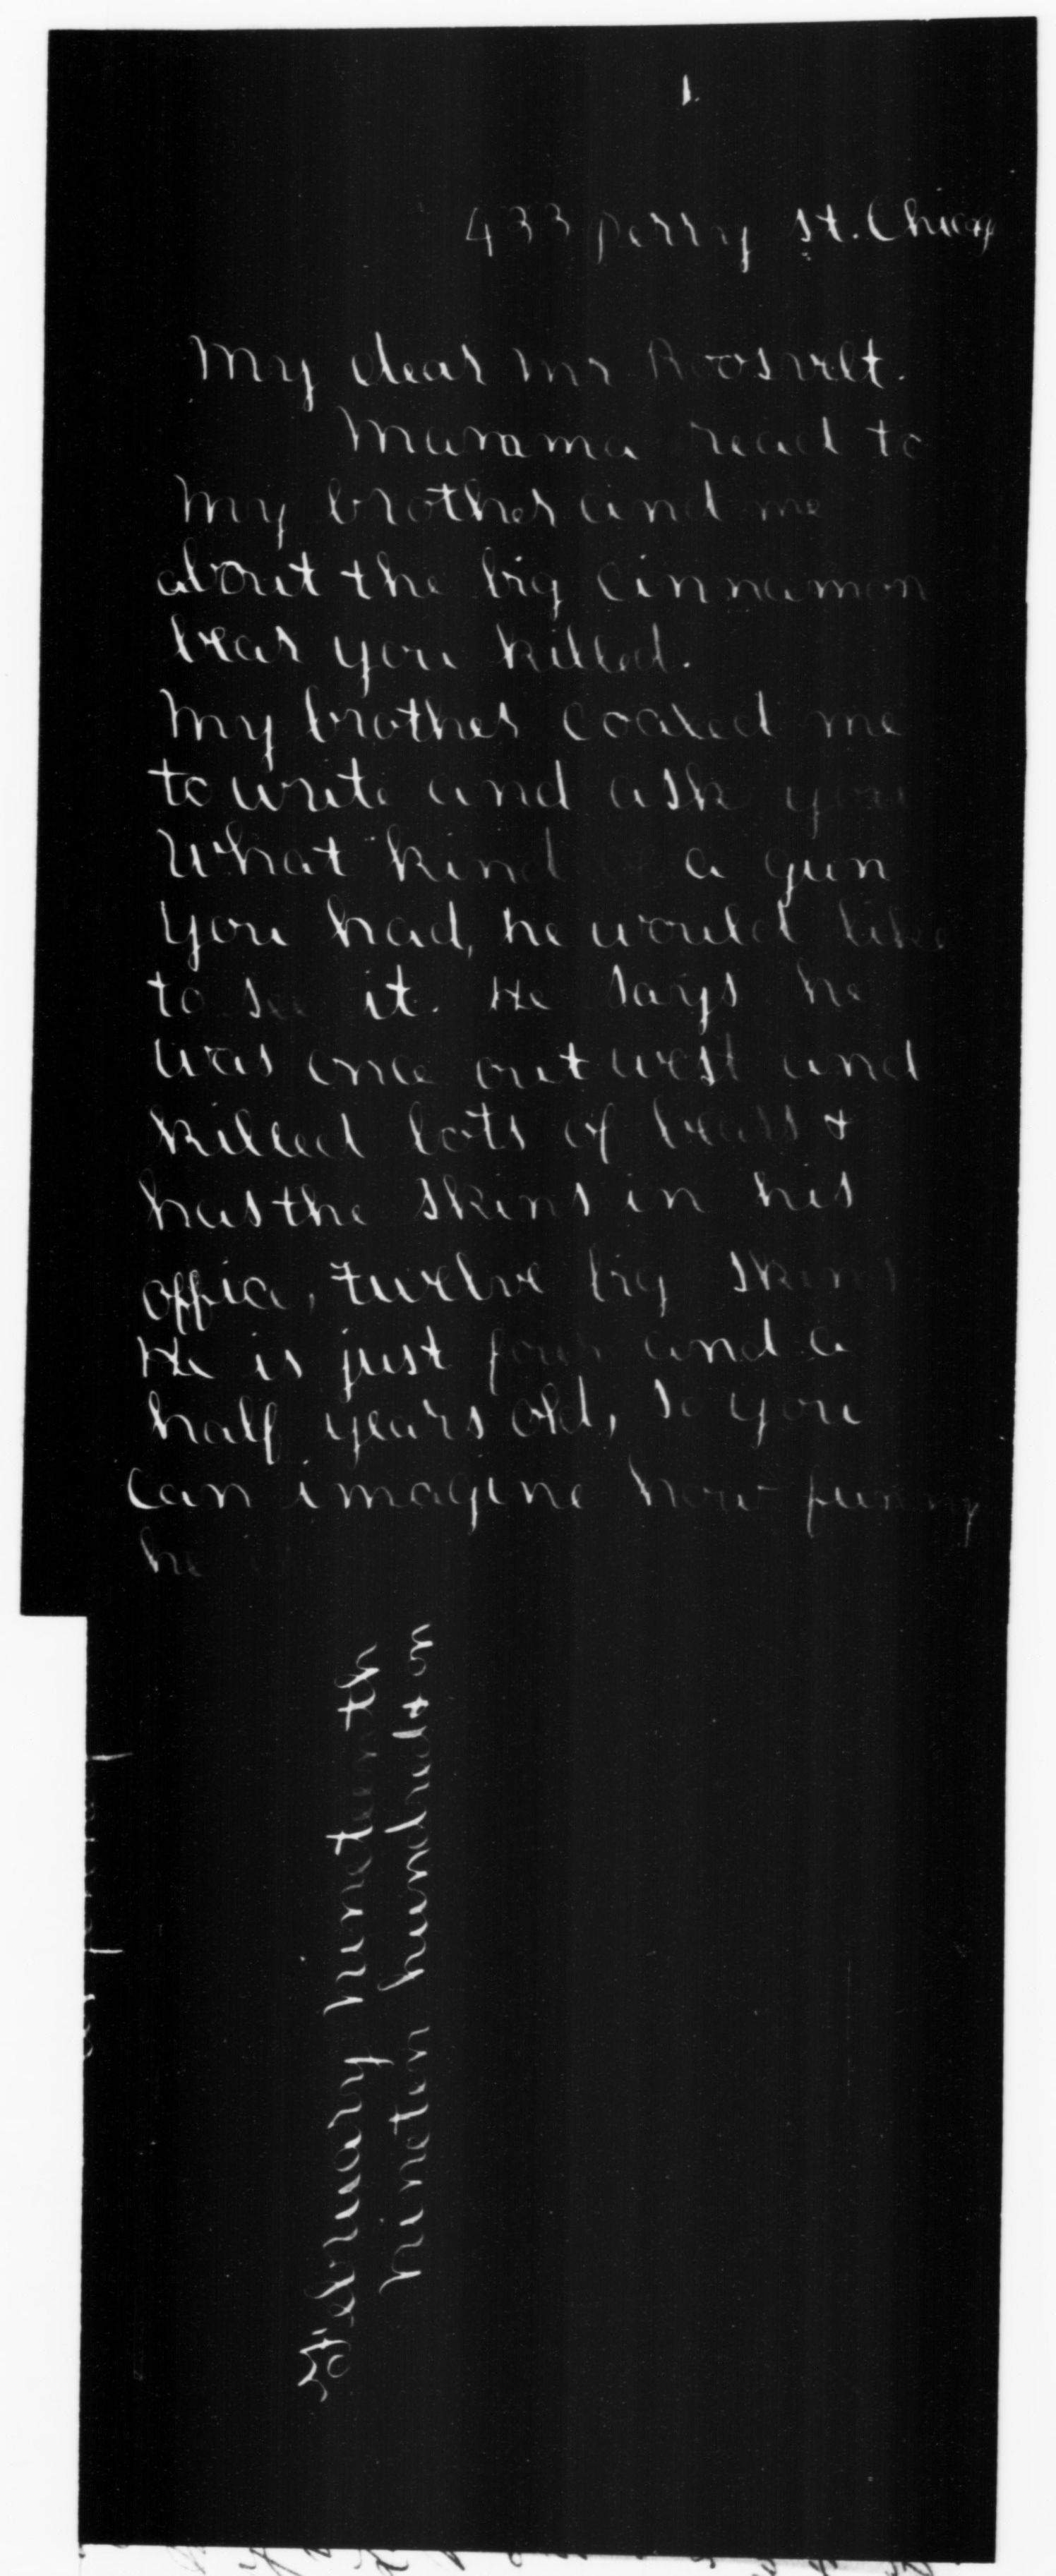 1.
433 perry st. Chicag
My dear Mr Roosvelt.
Mamma read to
my brother and me
about the big cinnamon
bear you killed.
My brother coaxed me
to write and ask you
What kind of a gun
you had, he would like
to see it. He says he
was once out west and
killed lots of bears +
has the skins in his
office, twelve big skins
He is just four and a
half years old, so you
can imagine how funny
he is
February nineteenth
nineten hundred + on